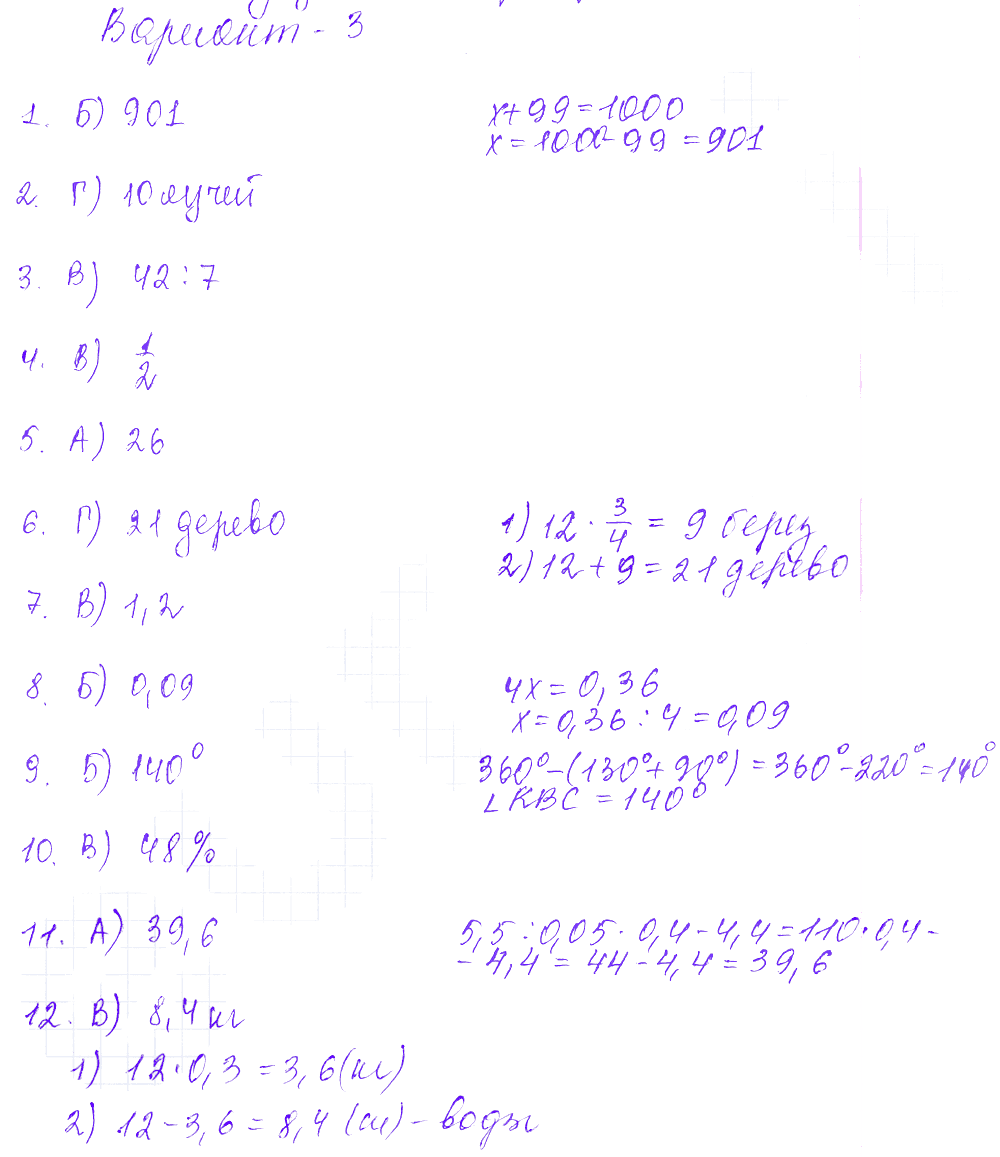 Вариант - 3
1. Б) 901
x + 99 = 1000
x = 1000 - 99 = 901
2. Г) 10 лучей
3. В) 42 : 7
4. В) 1/2
5. А) 26
6. Г) 21 дерево
1) 12 · 3/4 = 9 берез
2) 12 + 9 = 21 дерево
7. В) 1,2
8. Б) 0,09
4x = 0,36
x = 0,36 : 4 = 0,09
9. Б) 140°
360° - (130° + 90°) = 360° - 220° = 140°
∠KBC = 140°
10. В) 48%
11. А) 39,6
5,5 : 0,05 · 0,4 - 4,4 = 110 · 0,4 -
- 4,4 = 44 - 4,4 = 39,6
12. В) 8,4 кг
1) 12 · 0,3 = 3,6 (кг)
2) 12 - 3,6 = 8,4 (кг) - воды